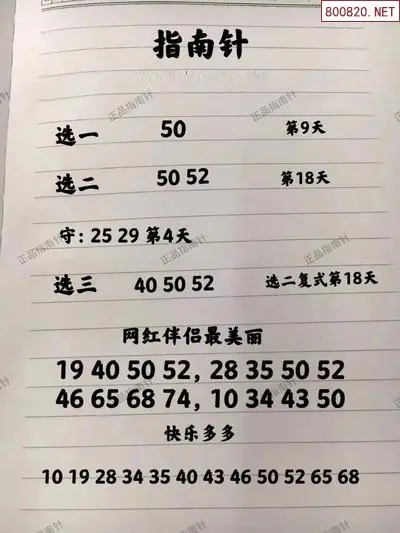 800820.NET
指南针
选一 50 第9天
选二 50 52 第18天
守：25 29 第4天
选三 40 50 52 选二复式第18天
网红伴侣最美丽
19 40 50 52, 28 35 50 52
46 65 68 74, 10 34 43 50
快乐多多
10 19 28 34 35 40 43 46 50 52 65 68
正品指南针
正品指南针
正品指南针
正品指南针
正品指南针
正品指南针
正品指南针
正品指南针
正品指南针